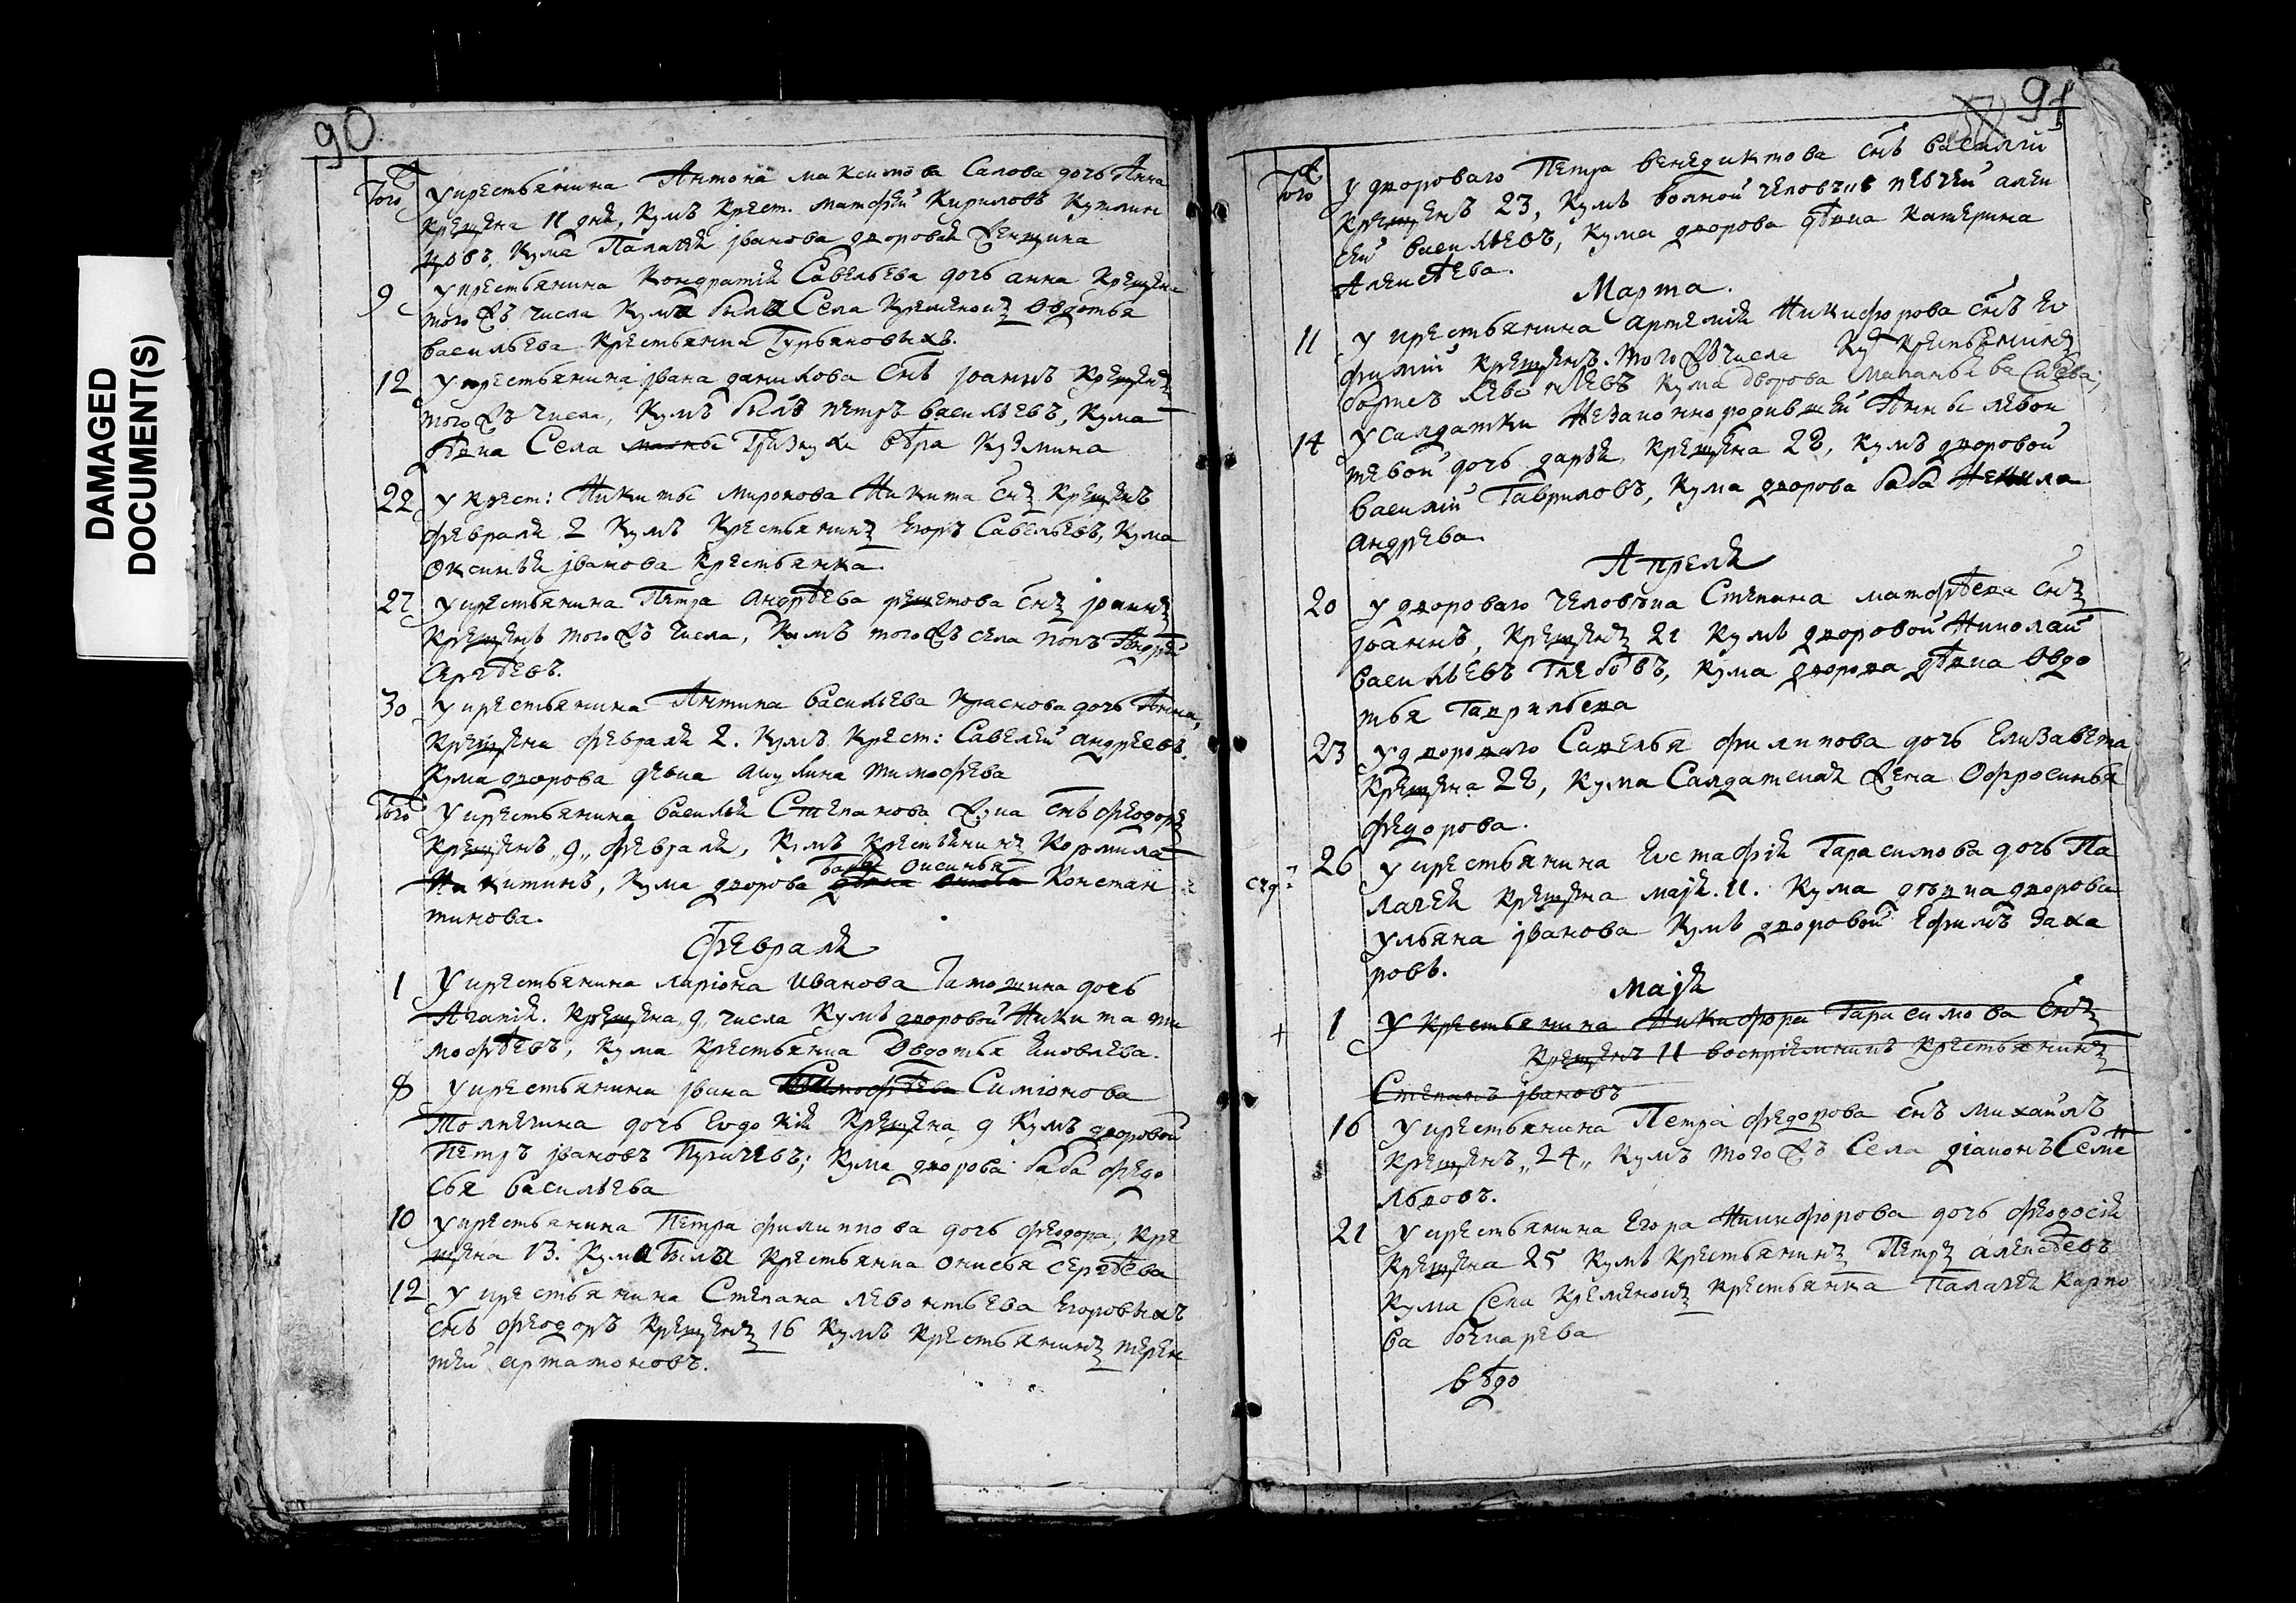 DAMAGED
DOCUMENT(S)
90
Того у крестьянина Антона максимова Салова дочь Анна
крещена 11 дня, кумъ крест. матфей Кириловъ
кума Палагѣя іванова дворовая женщина
9 у крестьянина Кондратія Савельева дочь анна крещена
того жъ числа кума была Села Овдотья
васильева крестьянка Гурьяновыхъ.
12 у крестьянина івана данилова снъ іоаннъ крещенъ
того жъ числа, кумъ былъ петръ васильевъ, кума
Села вѣра кузмина
22 у крест: Никиты миронова Никита снъ крещенъ
февраля 2 кумъ крестьянинъ Егоръ Савельевъ, кума
Оксинья іванова крестьянка.
27 у крестьянина Петра андрѣева решетова снъ іоаннъ
крещенъ того жъ числа, кумъ того жъ села попъ Андрей
30 у крестьянина Антипа васильева краснова дочь Анна,
крещена февраля 2. кумъ крест: Савелей андреевъ.
кума дворова девка акулина тимофѣва
Того у крестьянина василья Степанова снъ феодоръ
крещенъ „9„ февраля, кумъ крестьянинъ Кормила
баба Оксинья
Никитинъ, кума дворова Констан
тинова.
февраля
1 У крестьянина ларіона иванова дочь
Агафія. крещена „9„ числа кумъ дворовой Никита ти
мофѣевъ, кума крестьянка Овдотья яковлева.
8 у крестьянина івана Тимофѣева Симіонова
дочь Евдокія крещена 9 кумъ дворовой
Петръ івановъ Пугачевъ; кума дворова баба федо
сья васильева
10 у крестьянина Петра филиппова дочь феодора, кре
щена 13. кума была крестьянка онисья сергѣева
12 у крестьянина Степана левонтьева Егоровыхъ
снъ феодоръ крещенъ 16 кумъ крестьянинъ терен
тей артамоновъ.
91
Того у дворового Петра венедиктова снъ василій
крещенъ 23, кумъ волной человекъ певчей алек
сей васильевъ, кума дворова дѣвка катерина
Алексѣева.
Марта.
11 у крестьянина артемія Никифорова снъ Ев
фимій крещенъ. того жъ числа кумъ крестьянинъ
борисъ кума дворова маланья
14 у салдатки незаконнородившей Анны левон
тевой дочь дарья крещена 22, кумъ дворовой
василій Гавриловъ, кума дворова баба Ненила
андрѣва.
Апреля
20 у дворового человѣка Степана матфѣева снъ
іоаннъ, крещенъ 21 кумъ дворовой Николай
васильевъ Глебовъ, кума дворова дѣвка Овдо
тья Гаврильева
23 у дворового Савелья филипова дочь Елизавета
крещена 22, кума Салдатская жена Офросинья
федорова.
26 у крестьянина Евстафія Гарасимова дочь Па
лагѣя крещена маія. 11. кума девка дворова
ульяна іванова кумъ дворовой Ефимъ Заха
ровъ.
Маія
+ 1 У крестьянина Никифора Гарасимова снъ
крещенъ 11 воспріемникъ крестьянинъ
Степанъ івановъ
16 у крестьянина Петра федорова снъ михаилъ
крещенъ „24„ кумъ того жъ Села діаконъ
21 у крестьянина Егора Никифорова дочь феодосія
крещена 25 кумъ крестьянинъ Петръ алексѣевъ
кума села крестьянка Палагѣя Карпо
ва
вѣдо